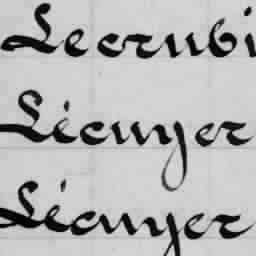 Lecrubi
Lécuyer
Lécuyer